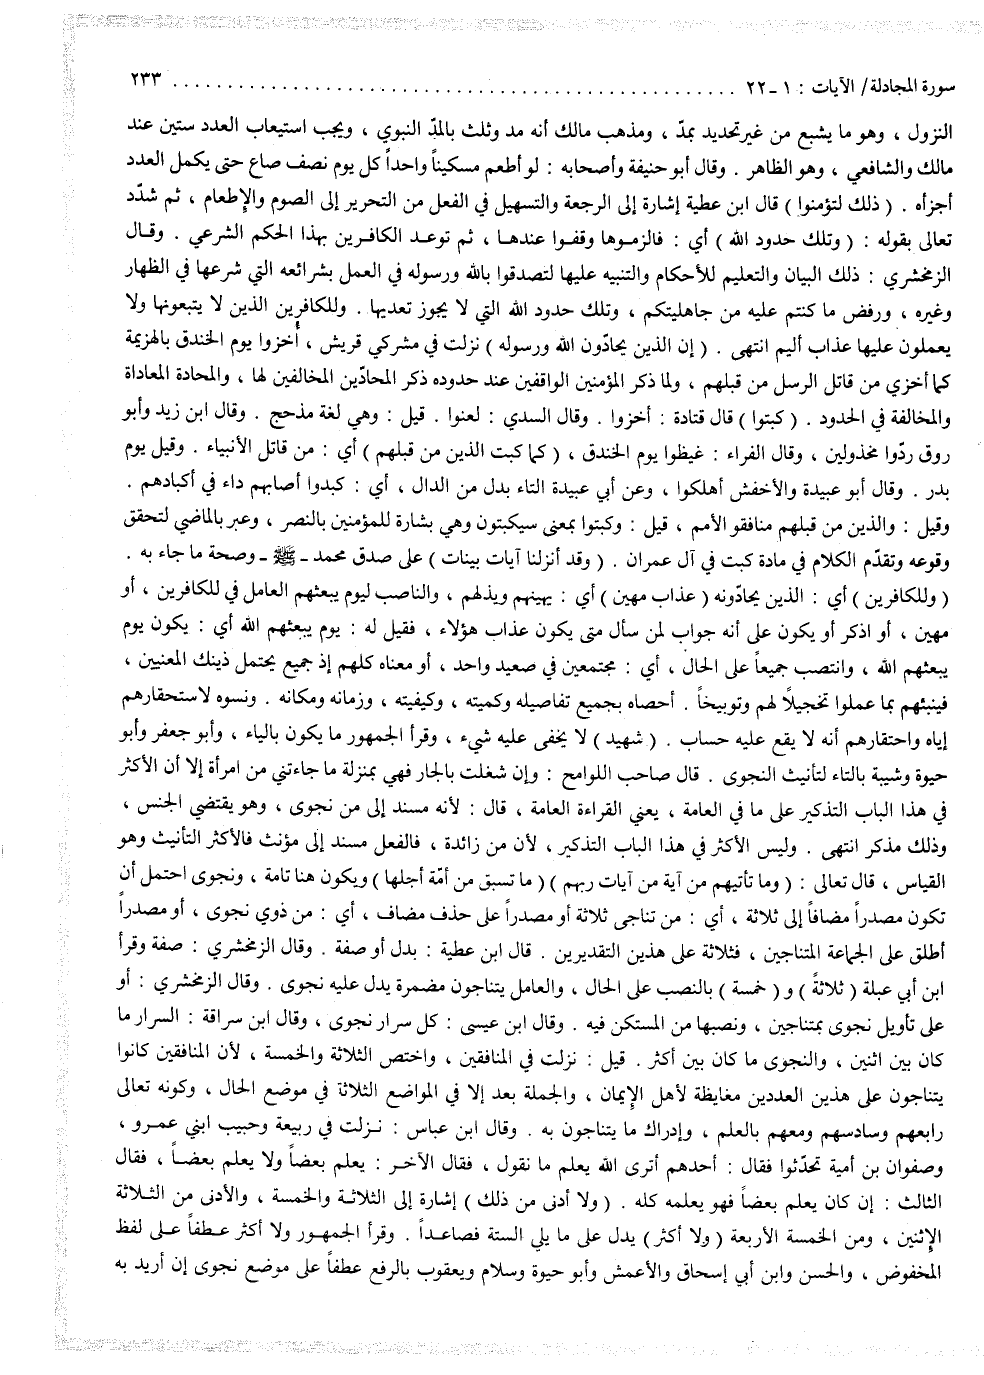 سورة المجادلة/ الآيات : ١ -٢٢ ........................................................ ٢٣٣
النزول ، وهو ما يشبع من غير تحديد بمدّ ، ومذهب مالك أنه مد وثلث بالمدّ النبوي ، ويجب استيعاب العدد ستين عند
مالك والشافعي ، وهو الظاهر . وقال أبو حنيفة وأصحابه : لو أطعم مسكيناً واحداً كل يوم نصف صاع حتى يكمل العدد
أجزأه . ( ذلك لتؤمنوا ) قال ابن عطية إشارة إلى الرجعة والتسهيل في الفعل من التحرير إلى الصوم والإطعام ، ثم شدّد
تعالى بقوله : ( وتلك حدود الله ) أي : فالزموها وقفوا عندها ، ثم توعد الكافرين بهذا الحكم الشرعي . وقال
الزمخشري : ذلك البيان والتعليم للأحكام والتنبيه عليها لتصدقوا بالله ورسوله في العمل بشرائعه التي شرعها في الظهار
وغيره ، ورفض ما كنتم عليه من جاهليتكم ، وتلك حدود الله التي لا يجوز تعديها . وللكافرين الذين لا يتبعونها ولا
يعملون عليها عذاب أليم انتهى . ( إن الذين يحادّون الله ورسوله ) نزلت في مشركي قريش ، أُخزوا يوم الخندق بالهزيمة
كما أخزي من قاتل الرسل من قبلهم ، ولما ذكر المؤمنين الواقفين عند حدوده ذكر المحادّين المخالفين لها ، والمحادة المعاداة
والمخالفة في الحدود . ( كبتوا ) قال قتادة : أخزوا . وقال السدي : لعنوا . قيل : وهي لغة مذحج . وقال ابن زيد وأبو
روق ردّوا مخذولين ، وقال الفراء : غيظوا يوم الخندق ، ( كما كبت الذين من قبلهم ) أي : من قاتل الأنبياء . وقيل يوم
بدر . وقال أبو عبيدة والأخفش أهلكوا ، وعن أبي عبيدة التاء بدل من الدال ، أي : كبدوا أصابهم داء في أكبادهم .
وقيل : والذين من قبلهم منافقو الأمم ، قيل : وكبتوا بمعنى سيكبتون وهي بشارة للمؤمنين بالنصر ، وعبر بالماضي لتحقق
وقوعه وتقدّم الكلام في مادة كبت في آل عمران . ( وقد أنزلنا آيات بينات ) على صدق محمد ـ ﷺ ـ وصحة ما جاء به .
( وللكافرين ) أي : الذين يحادّونه ( عذاب مهين ) أي : يهينهم ويذلهم ، والناصب ليوم يبعثهم العامل في للكافرين ، أو
مهين ، أو اذكر أو يكون على أنه جواب لمن سأل متى يكون عذاب هؤلاء ، فقيل له : يوم يبعثهم الله أي : يكون يوم
يبعثهم الله ، وانتصب جميعاً على الحال ، أي : مجتمعين في صعيد واحد ، أو معناه كلهم إذ جميع يحتمل ذينك المعنيين ،
فينبئهم بما عملوا تخجيلاً لهم وتوبيخاً . أحصاه بجميع تفاصيله وكميته ، وكيفيته ، وزمانه ومكانه . ونسوه لاستحقارهم
إياه واحتقارهم أنه لا يقع عليه حساب . ( شهيد ) لا يخفى عليه شيء ، وقرأ الجمهور ما يكون بالياء ، وأبو جعفر وأبو
حيوة وشيبة بالتاء لتأنيث النجوى . قال صاحب اللوامح : وإن شغلت بالجار فهي بمنزلة ما جاءتني من امرأة إلا أن الأكثر
في هذا الباب التذكير على ما في العامة ، يعني القراءة العامة ، قال : لأنه مسند إلى من نجوى ، وهو يقتضي الجنس ،
وذلك مذكر انتهى . وليس الأكثر في هذا الباب التذكير ، لأن من زائدة ، فالفعل مسند إلى مؤنث فالأكثر التأنيث وهو
القياس ، قال تعالى : ( وما تأتيهم من آية من آيات ربهم ) ( ما تسبق من أمّة أجلها ) ويكون هنا تامة ، ونجوى احتمل أن
تكون مصدراً مضافاً إلى ثلاثة ، أي : من تناجى ثلاثة أو مصدراً على حذف مضاف ، أي : من ذوي نجوى ، أو مصدراً
أطلق على الجماعة المتناجين ، فثلاثة على هذين التقديرين . قال ابن عطية : بدل أو صفة . وقال الزمخشري : صفة وقرأ
ابن أبي عبلة ( ثلاثةً ) و ( خمسة ) بالنصب على الحال ، والعامل يتناجون مضمرة يدل عليه نجوى . وقال الزمخشري : أو
على تأويل نجوى بمتناجين ، ونصبها من المستكن فيه . وقال ابن عيسى : كل سرار نجوى ، وقال ابن سراقة : السرار ما
كان بين اثنين ، والنجوى ما كان بين أكثر . قيل : نزلت في المنافقين ، واختص الثلاثة والخمسة ، لأن المنافقين كانوا
يتناجون على هذين العددين مغايظة لأهل الإيمان ، والجملة بعد إلا في المواضع الثلاثة في موضع الحال ، وكونه تعالى
رابعهم وسادسهم ومعهم بالعلم ، وإدراك ما يتناجون به . وقال ابن عباس : نزلت في ربيعة وحبيب ابني عمرو ،
وصفوان بن أمية تحدّثوا فقال : أحدهم أترى الله يعلم ما نقول ، فقال الآخر : يعلم بعضاً ولا يعلم بعضاً ، فقال
الثالث : إن كان يعلم بعضاً فهو يعلمه كله . ( ولا أدنى من ذلك ) إشارة إلى الثلاثة والخمسة ، والأدنى من الثلاثة
الإثنين ، ومن الخمسة الأربعة ( ولا أكثر ) يدل على ما يلي الستة فصاعداً . وقرأ الجمهور ولا أكثر عطفاً على لفظ
المخفوض ، والحسن وابن أبي إسحاق والأعمش وأبو حيوة وسلام ويعقوب بالرفع عطفاً على موضع نجوى إن أريد به